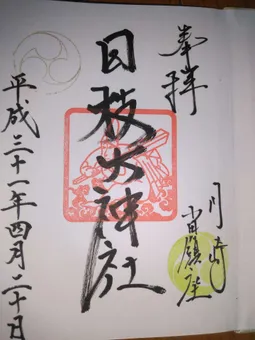 奉拝
川崎
当願座
日枝大神社
平成三十一年四月二十日